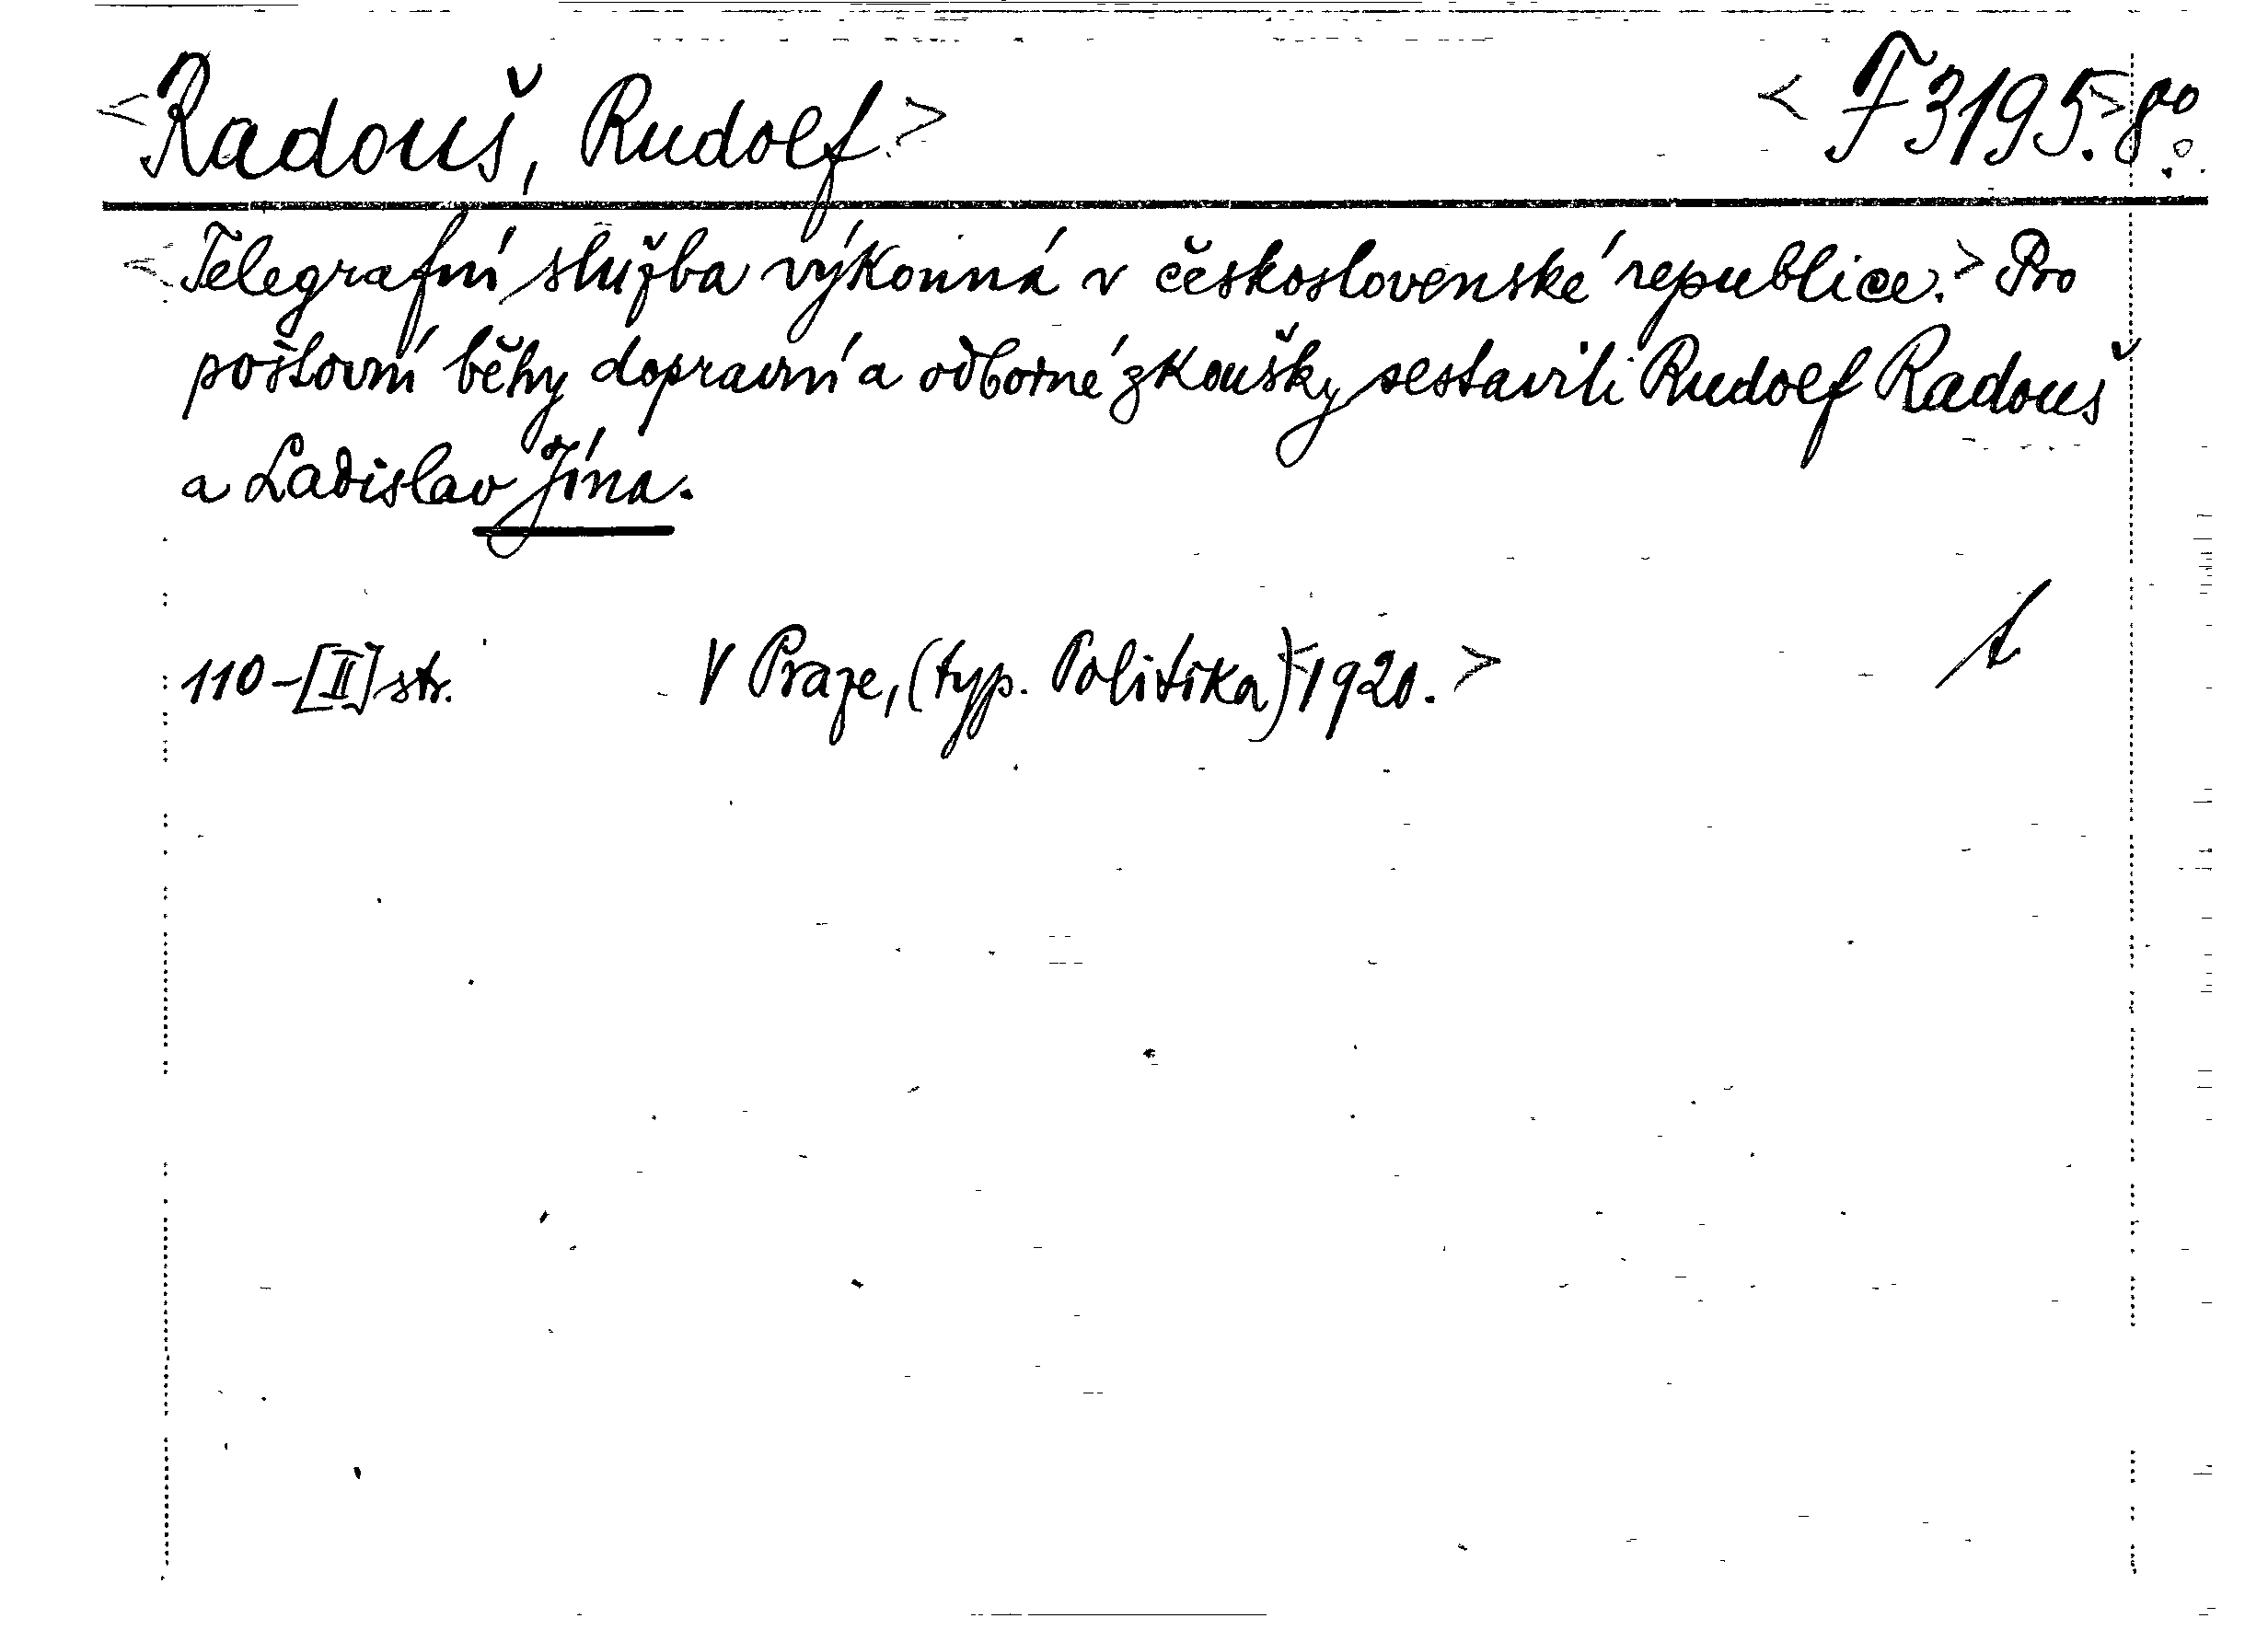 <Radouš, Rudolf> <F 3195.>8°.
<Telegrafní služba výkonná v československé republice.> Pro
poštovní běhy dopravní a odborné zkoušky sestavili Rudolf Radouš
a Ladislav Jína.
110-[II] str. V Praze, (typ. Politika) <1920.> t